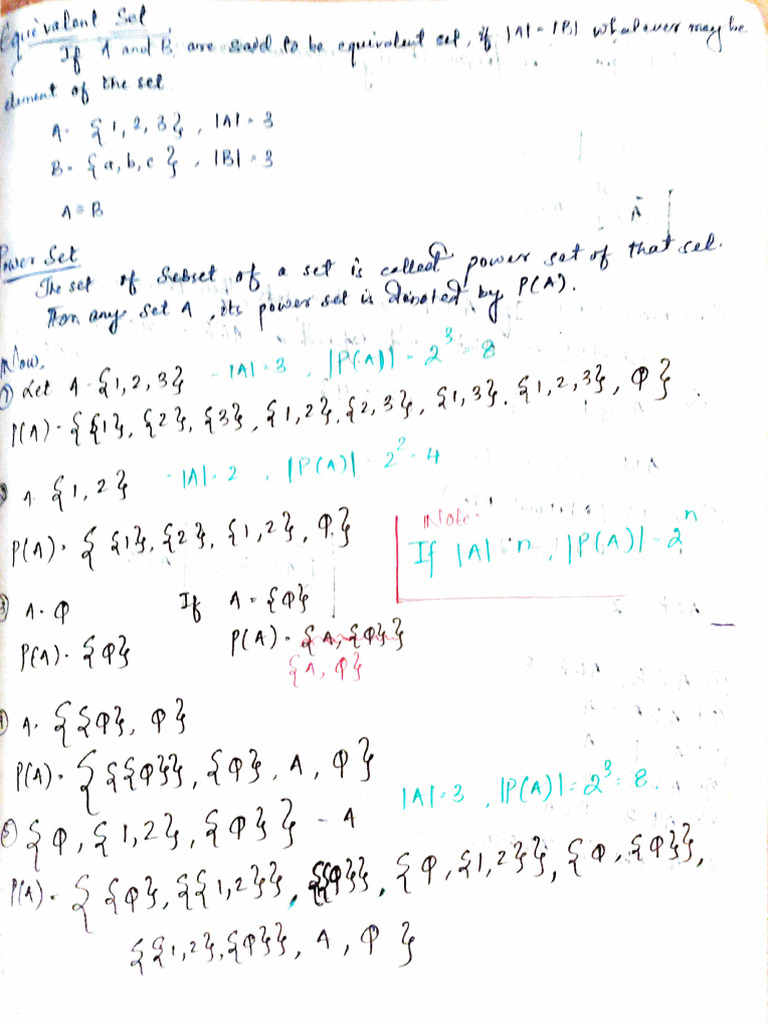 Equivalent Set
If A and B are said to be equivalent set, if |A| = |B| whatever may be
element of the set
A = {1, 2, 3}, |A| = 3
B = {a, b, c}, |B| = 3
A ≡ B
A
Power Set
The set of Subset of a set is called power set of that set.
For any set A, its power set is denoted by P(A).
Now,
① Let A = {1, 2, 3} - |A| = 3, |P(A)| = 2³ = 8
P(A) = {{1}, {2}, {3}, {1, 2}, {2, 3}, {1, 3}, {1, 2, 3}, φ}
② A = {1, 2} - |A| = 2, |P(A)| = 2² = 4
P(A) = { {1}, {2}, {1, 2}, φ }
Note-
If |A| = n, |P(A)| = 2ⁿ
③ A = φ If A = {φ}
P(A) = {φ} P(A) = {A, {φ}}
{A, φ}
④ A = {{φ}, φ}
P(A) = { {{φ}}, {φ}, A, φ }
|A| = 3, |P(A)| = 2³ = 8
⑤ {φ, {1, 2}, {φ}} = A
P(A) = { {φ}, {{1, 2}}, {{φ}}, {φ, {1, 2}}, {φ, {φ}},
{{1, 2}, {φ}}, A, φ }